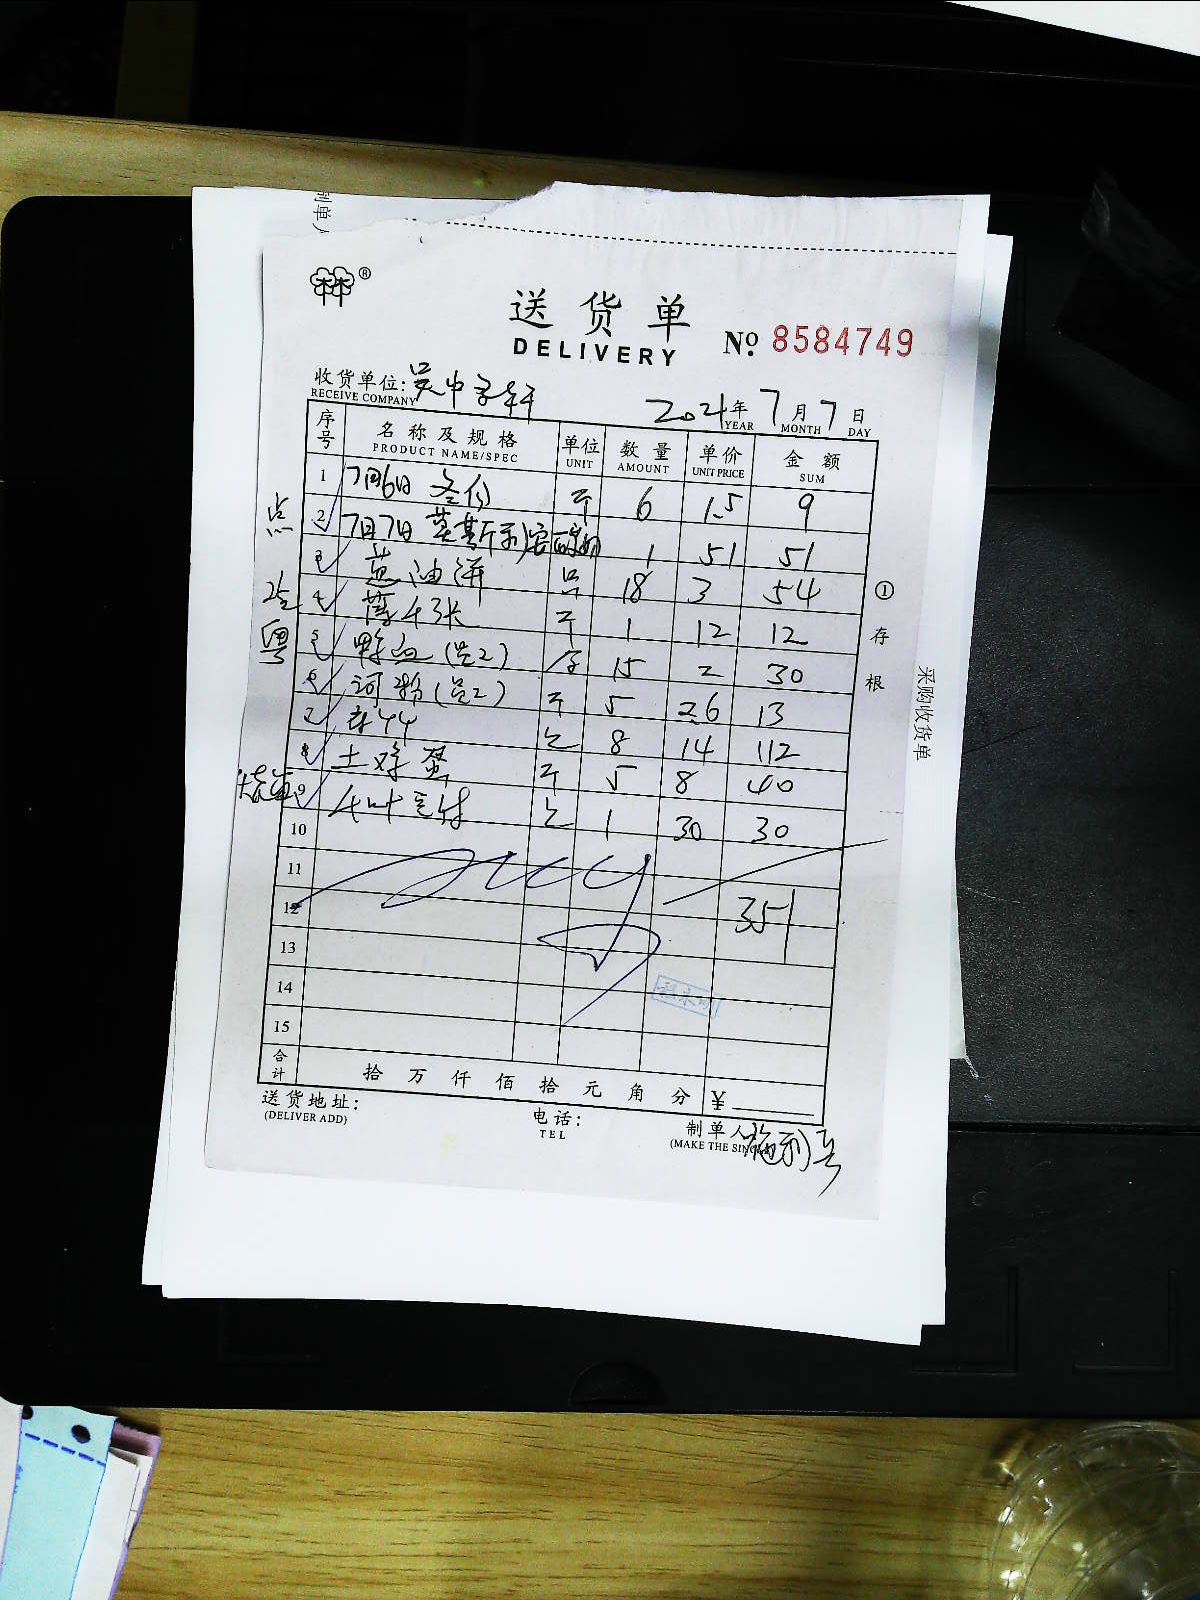 制单人
®
送货单
DELIVERY
No 8584749
收货单位:吴中子轩
RECEIVE COMPANY
2021年7月7日
YEAR MONTH DAY
序号 名称及规格 单位 数量 单价 金额
PRODUCT NAME/SPEC UNIT AMOUNT UNIT PRICE SUM
1 7月6日 冬瓜 斤 6 1.5 9
点 2 7月7日 莫斯利安酸奶 1 51 51
3 葱油饼 包 18 3 54
4 斤 1 12 12
粤 5 鸭血(员工) 盒 15 2 30
6 河粉(员工) 斤 5 2.6 13
7 8 14 112
8 土鸡蛋 斤 5 8 40
9 1 30 30
10
11
12 351
13
14
15
合计 拾 万 仟 佰 拾 元 角 分 ¥
送货地址:
(DELIVER ADD)
电话:
TEL
制单人
(MAKE THE SINGLE)
①存根
采购收货单